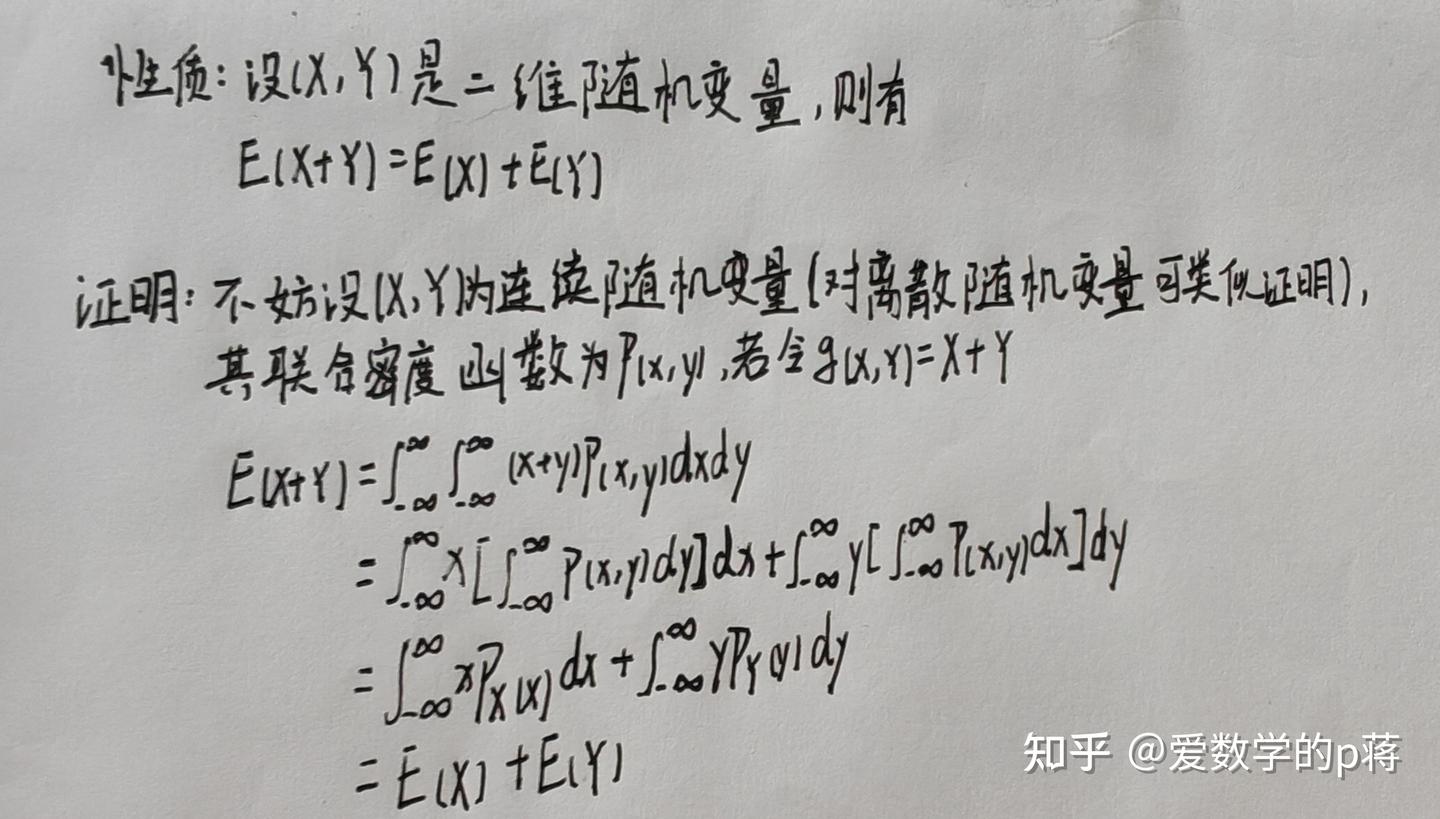 性质：设(X,Y)是二维随机变量，则有
E(X+Y)=E(X)+E(Y)
证明：不妨设(X,Y)为连续随机变量(对离散随机变量可类似证明)，
其联合密度函数为P(x,y)，若令g(X,Y)=X+Y
E(X+Y)=∫_{-∞}^{∞}∫_{-∞}^{∞}(x+y)P(x,y)dxdy
=∫_{-∞}^{∞}x[∫_{-∞}^{∞}P(x,y)dy]dx+∫_{-∞}^{∞}y[∫_{-∞}^{∞}P(x,y)dx]dy
=∫_{-∞}^{∞}xP_X(x)dx+∫_{-∞}^{∞}yP_Y(y)dy
=E(X)+E(Y)
知乎 @爱数学的p蒋